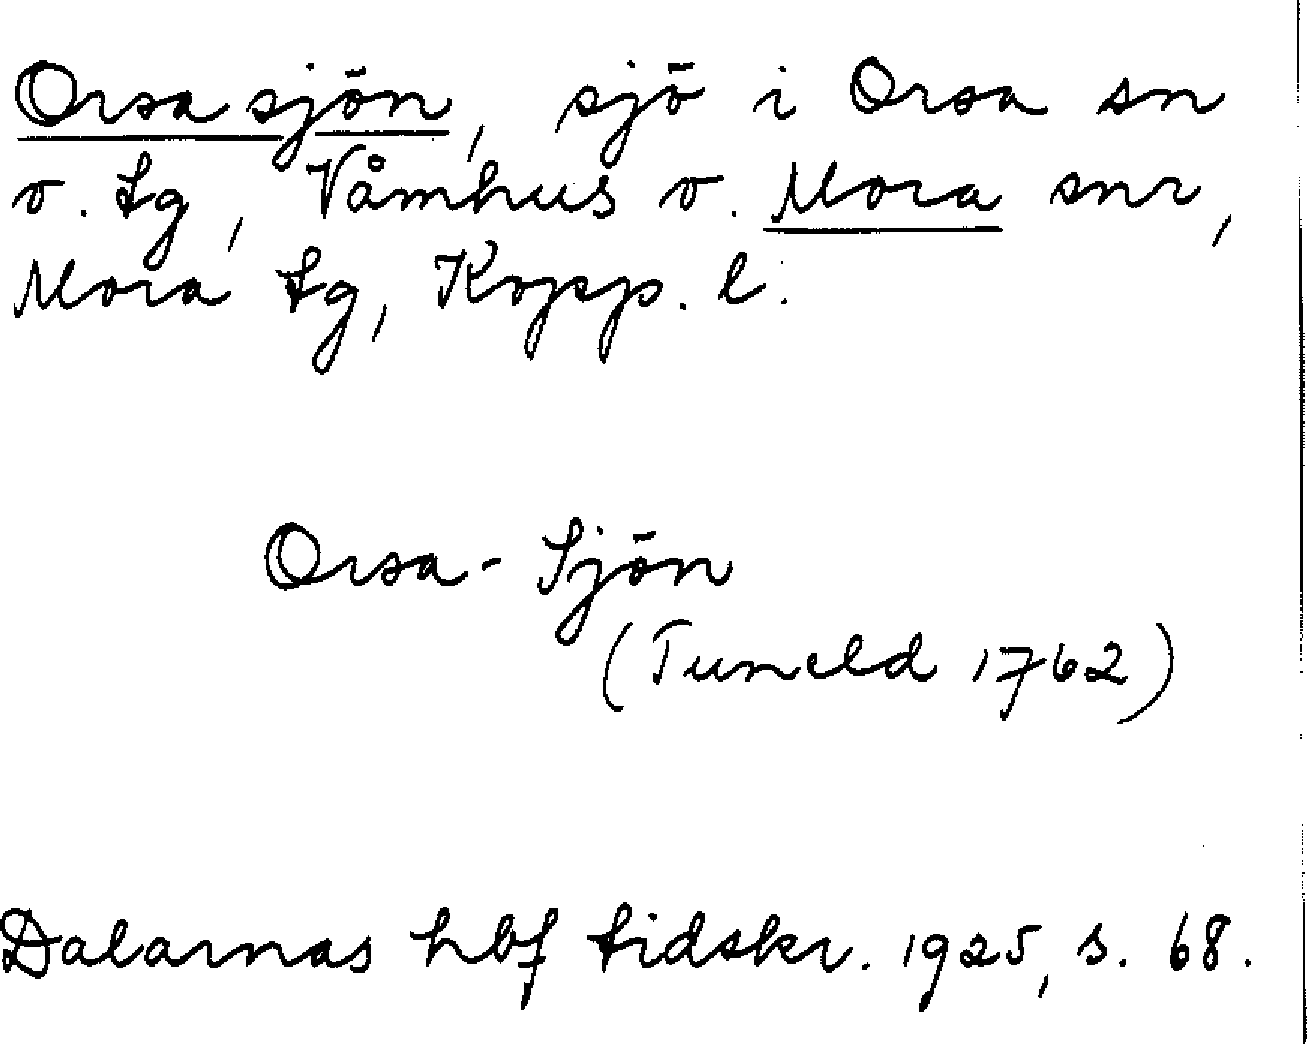 Orsasjön, sjö i Orsa sn
o. tg, Våmhus o. Mora snr,
Mora tg, Kopp. l.
Orsa-Sjön
(Tuneld 1762)
Dalarnas hbf tidskr. 1925, s. 68.